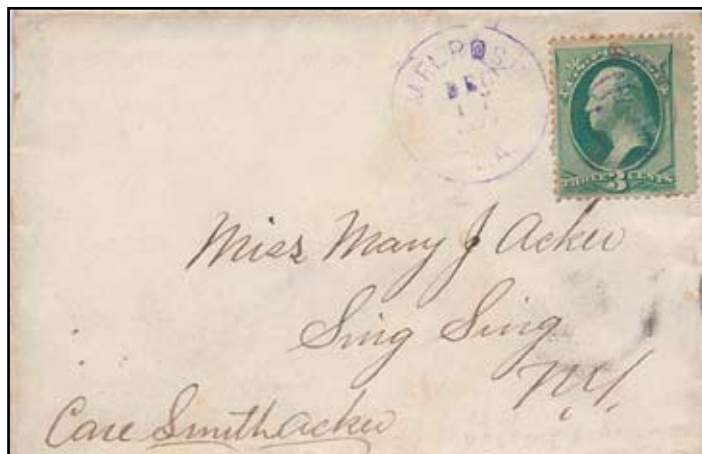 MELROSE
DEC
THREE 3 CENTS
Miss Mary J Acker
Sing Sing
N.Y.
Care Smith Acker